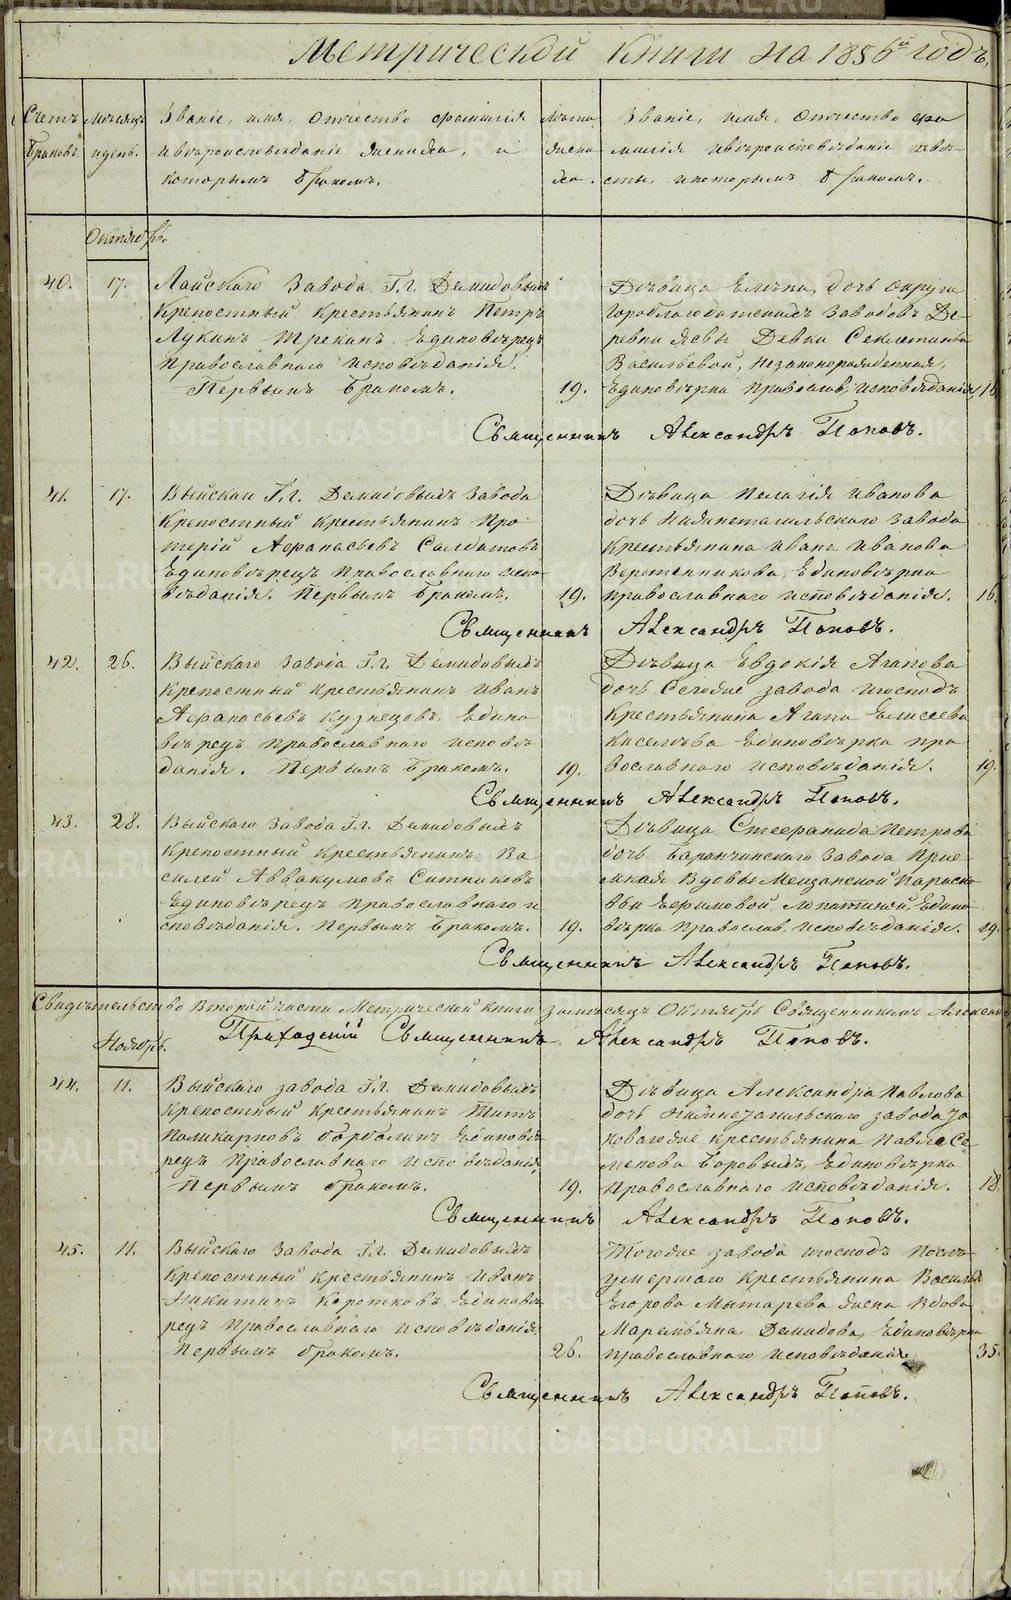 Метрической Книги на 1856й годъ,
Счетъ Браковъ.
Месяцъ и день.
Званіе, имя, отчество фамилія
и вѣроисповѣданіе жениха, и
которымъ бракомъ.
Лѣта
жени
ха.
Званіе, имя, отчество фа
милія и вѣроисповѣданіе невѣ-
сты, и которымъ бракомъ.
Октябрь.
40. 17.
Лайскаго Завода Г.г. Демидовыхъ
Крепостный Крестьянинъ Петръ
Лукинъ Трекинъ, Единовѣрецъ
Православнаго исповѣданія.
Первымъ бракомъ. 19.
Дѣвица Елена, дочь округа
Гороблагодатскихъ Заводовъ Де-
ревни Девки
Васильевой, незаконнорожденная,
Единовѣрка Православ. исповѣданія, 16.
Священникъ Александръ Поповъ.
41. 17.
Выйскаго Г.г. Демидовыхъ Завода
Крепостный Крестьянинъ Про
терій Афанасьевъ Салдатовъ
Единовѣрецъ Православнаго испо-
вѣданія. Первымъ бракомъ. 19.
Дѣвица Пелагія Иванова
дочь Нижнетагильскаго Завода
Крестьянина Ивана Иванова
Веретенникова, Единовѣрка
православнаго исповѣданія. 16.
Священникъ Александръ Поповъ.
42. 26.
Выйскаго Завода Г.г. Демидовыхъ
Крепостный крестьянинъ Иванъ
Афанасьевъ Кузнецовъ, Едино
вѣрецъ православнаго исповѣ
данія. Первымъ бракомъ. 19.
Дѣвица Евдокія Агапова
дочь Сегоже завода и господъ
Крестьянина Агапа Елисеева
Киселева Единовѣрка пра
вославнаго исповѣданія. 19.
Священникъ Александръ Поповъ.
43. 28.
Выйскаго Завода Г.г. Демидовыхъ
Крепостный крестьянинъ Ва
силей Аввакумовъ Ситниковъ
Единовѣрецъ православнаго и
сповѣданія. Первымъ бракомъ. 19.
Дѣвица Стефанида Петрова
дочь Баранчинскаго Завода Прие-
мная Вдовы Мещанской Параско
вьи Ефимовой Едино
вѣрка Православ. исповѣданія. 19.
Священникъ Александръ Поповъ.
Свидѣтельство Второй части Метрической Книги за месяцъ Октябрь Священникомъ Алексан
Приходскій Священникъ Александръ Поповъ.
Ноябрь.
44. 11.
Выйскаго завода Г.г. Демидовыхъ
Крепостный крестьянинъ Титъ
Поликарповъ Единовѣ
рецъ Православнаго исповѣданія
Первымъ бракомъ. 19.
Дѣвица Александра Павлова
дочь Нижнетагильскаго завода та
ковагоже крестьянина Павла Се
менова Боровыхъ, Единовѣрка
Православнаго исповѣданія. 18.
Священникъ Александръ Поповъ.
45. 11.
Выйскаго Завода Г.г. Демидовыхъ
Крепостный крестьянинъ Иванъ
Никитинъ Коротковъ, Единовѣ
рецъ Православнаго исповѣданія
Первымъ бракомъ. 26.
Тогоже завода и господъ послѣ
умершаго Крестьянина Василья
Егорова Мытарева жена Вдова
Маремьяна Демидова, Единовѣрка
православнаго исповѣданія. 35.
Священникъ Александръ Поповъ.
METRIKI.GASO-URAL.RU